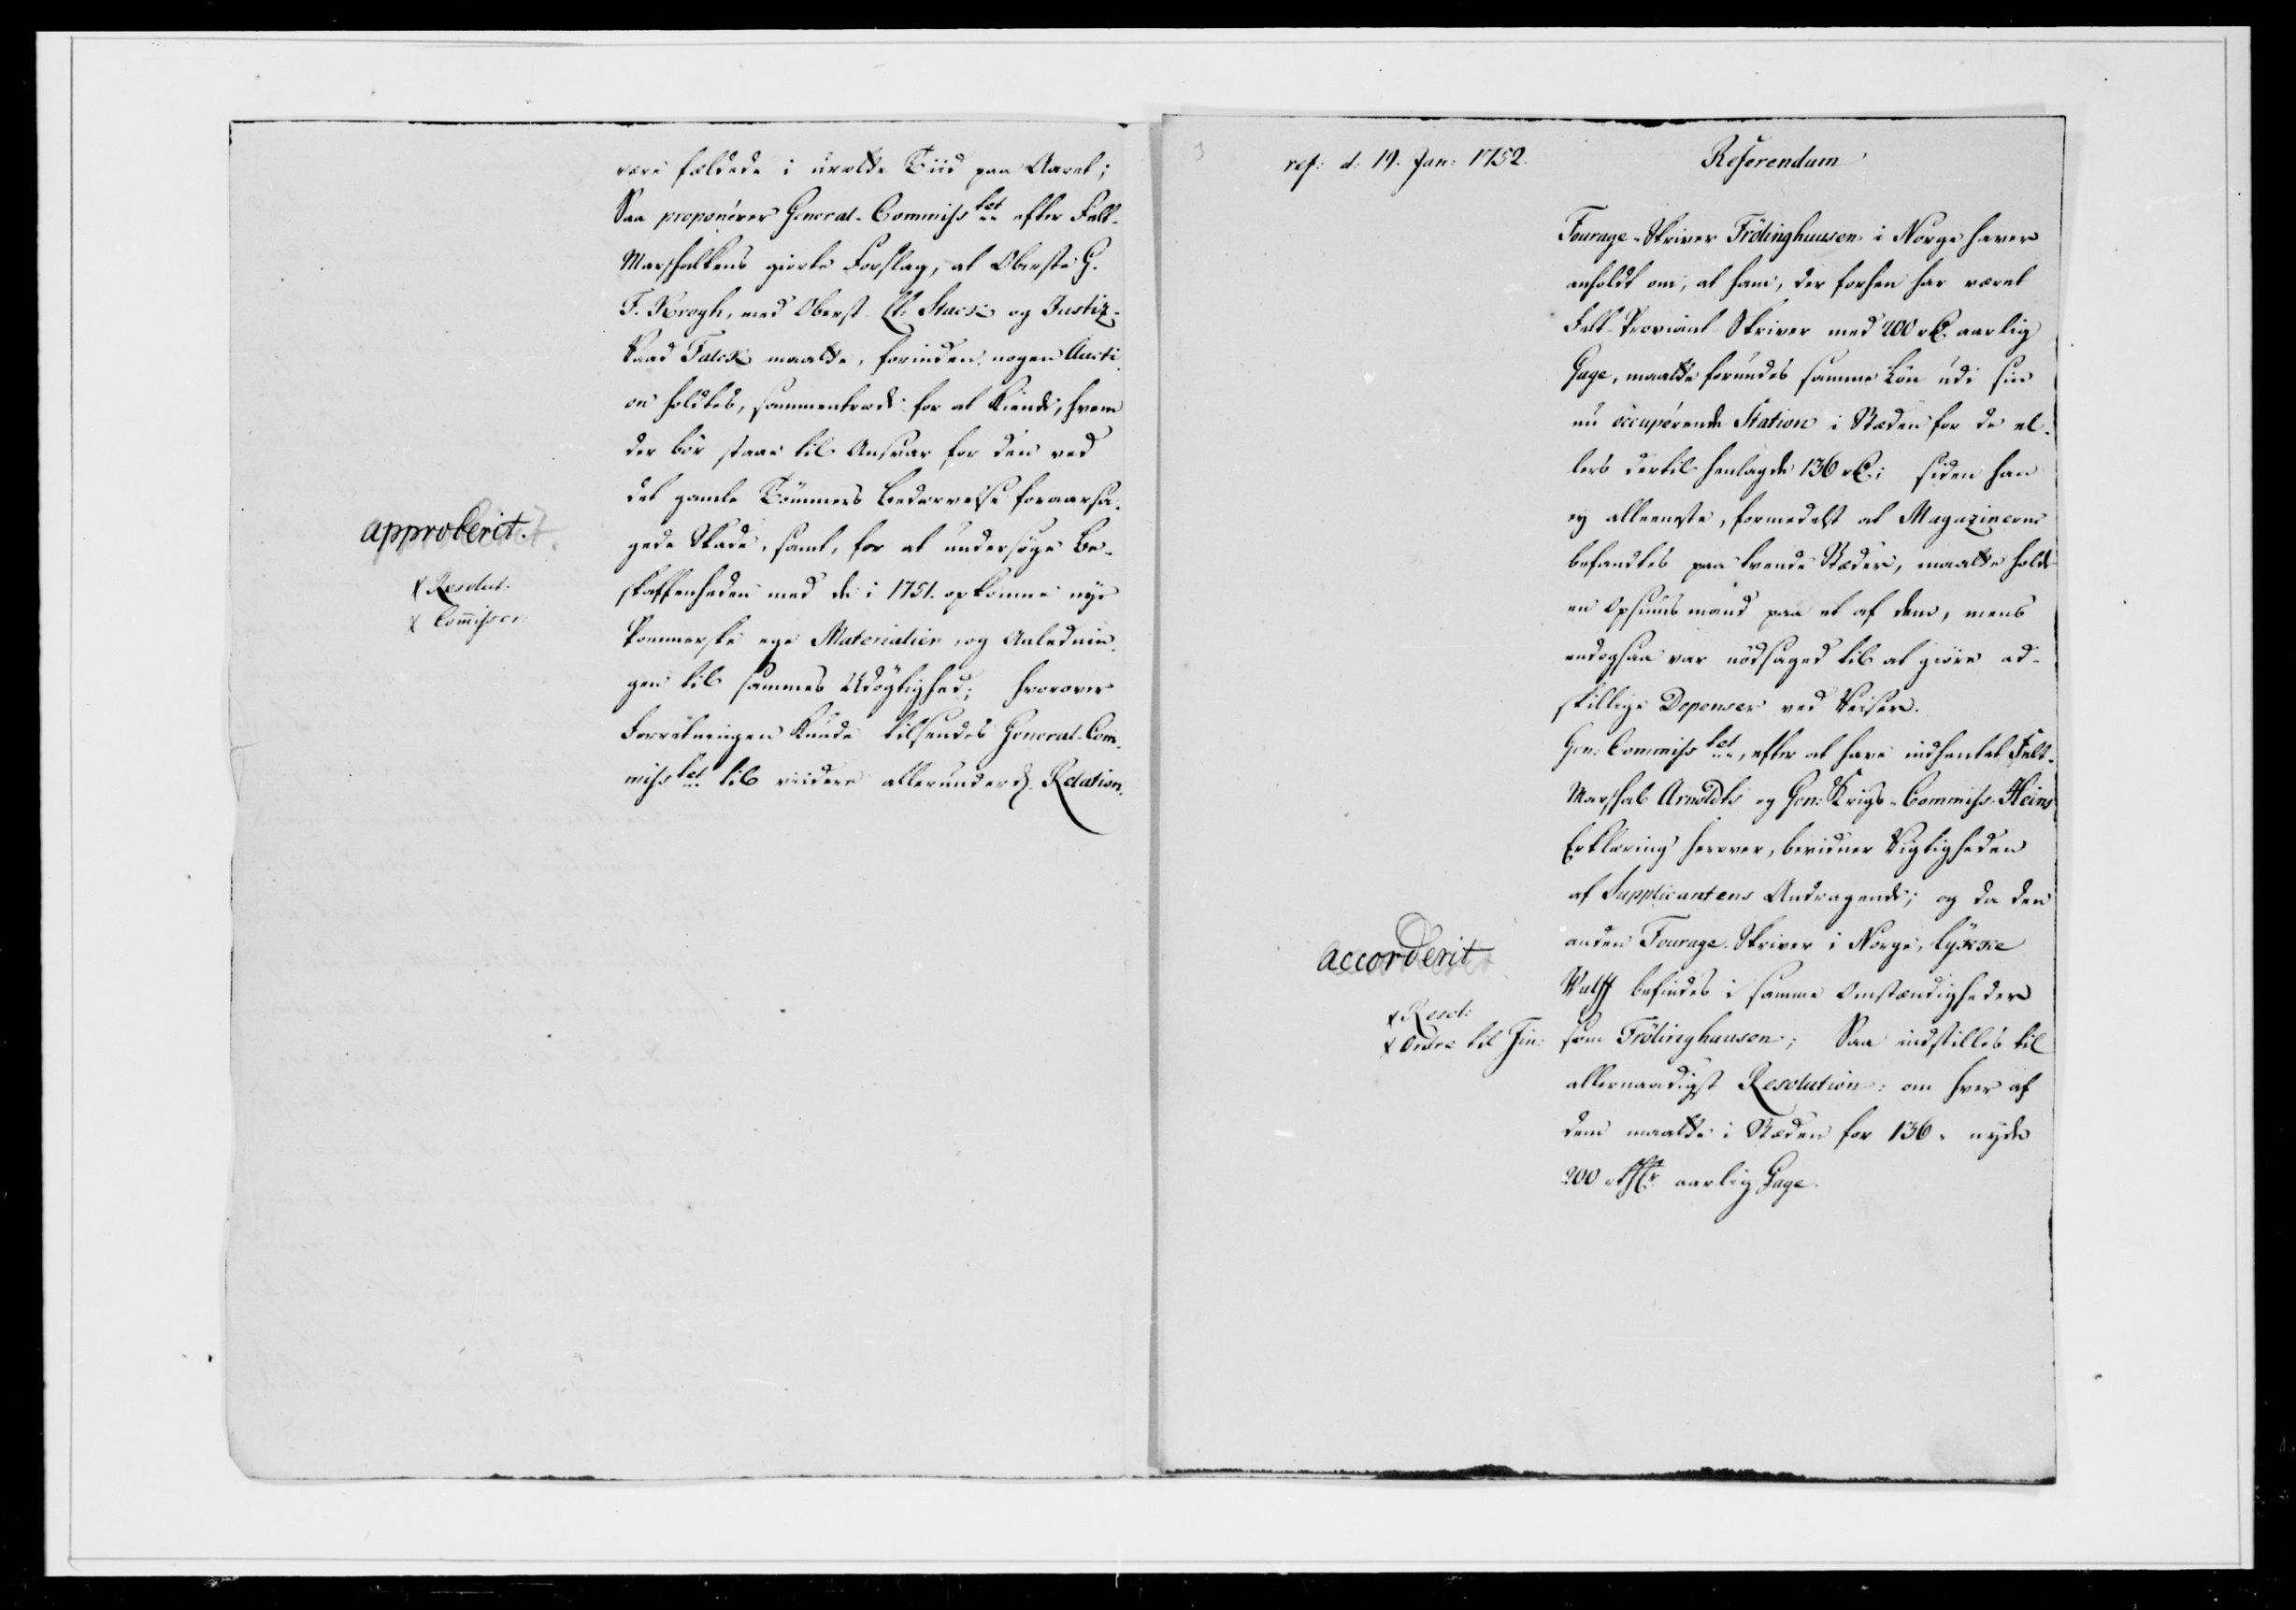 være fældede i uratte Tiid paa Aaret;
Saa proponerer General-Commiss.tet efter Felt-
Marschallens giorte Forslag, at Oberste G.
F. Krogh, med Oberst Lt. Stack og Justiz-
Raad Falck maatte, forinden nogen Aucti-
on holdtes, sammentræde for at kiende, hvem
der bör staae til Ansvar for den ved
det gamle Tömmers bedervelse foraarsa-
gede Skade, samt, for at undersöge Be-
skaffenheden med de i 1751. opkomne nye
Pommerske ege Materialier, og Anlednin-
gen til sammes Udögtighed; hvorover
Forretningen kunde tilsendes General-Com-
miss.tet til viidere allerunderd. Relation.
approberit.
x Resolut.
x Commisser.
3
ref: d: 19. Jan: 1752.
Referendum
Fourage-Skriver Frölinghuusen i Norge haver
anholdt om, at ham, der forhen har været
Felt-Proviant-Skriver med 200 rd. aarlig
Gage, maatte forundes samme Lön udi sin
nu occuperende Station i Stæden for de el-
lers dertil henlagde 136 rd.; siden han
ey alleneste, formedelst at Magazinerne
befandtes paa tvende Stæder, maatte holde
en Opsiuns mand paa et af dem, mens
endogsaa var nödsaged til at giöre ad-
skillige Depenser ved Reiser.
Gen: Commiss.tet, efter at have indhentet Felt-
Marschal Arnoldts og Gen: Krigs-Commiss. Heins
Erklæring herover, bevidner Rigtigheden
af Supplicantens Andragende; og da den
anden Fourage-Skriver i Norge, Lykke
Wulff befindes i samme Omstændigheder
som Frölinghausen; Saa indstilles til
allernaadigst Resolution: om hver af
dem maatte i Stæden for 136. nyde
200 rdlr. aarlig Gage.
accorderit
x Resol:
x Ordre til Fin: